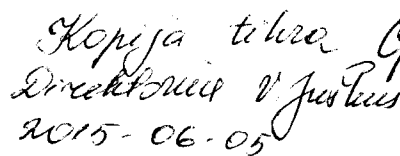 Kopija tikra
Direktorius V. Juškus
2015-06-05